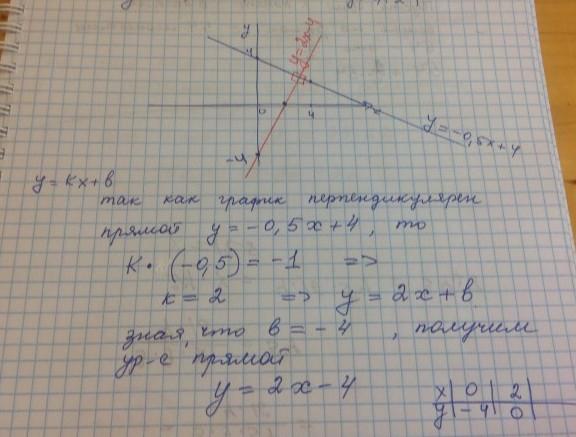 y
4
y=2x-4
0
4
x
-4
y=-0,5x+4
y=kx+b
так как график перпендикулярен
прямой y=-0,5x+4, то
k·(-0,5)=-1 =>
k=2 => y=2x+b
зная, что b=-4, получим
ур-е прямой
y=2x-4
x | 0 | 2
y | -4 | 0